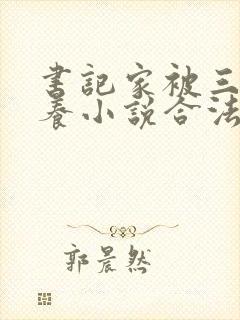 書記家被三
養小說合法
郭晨然